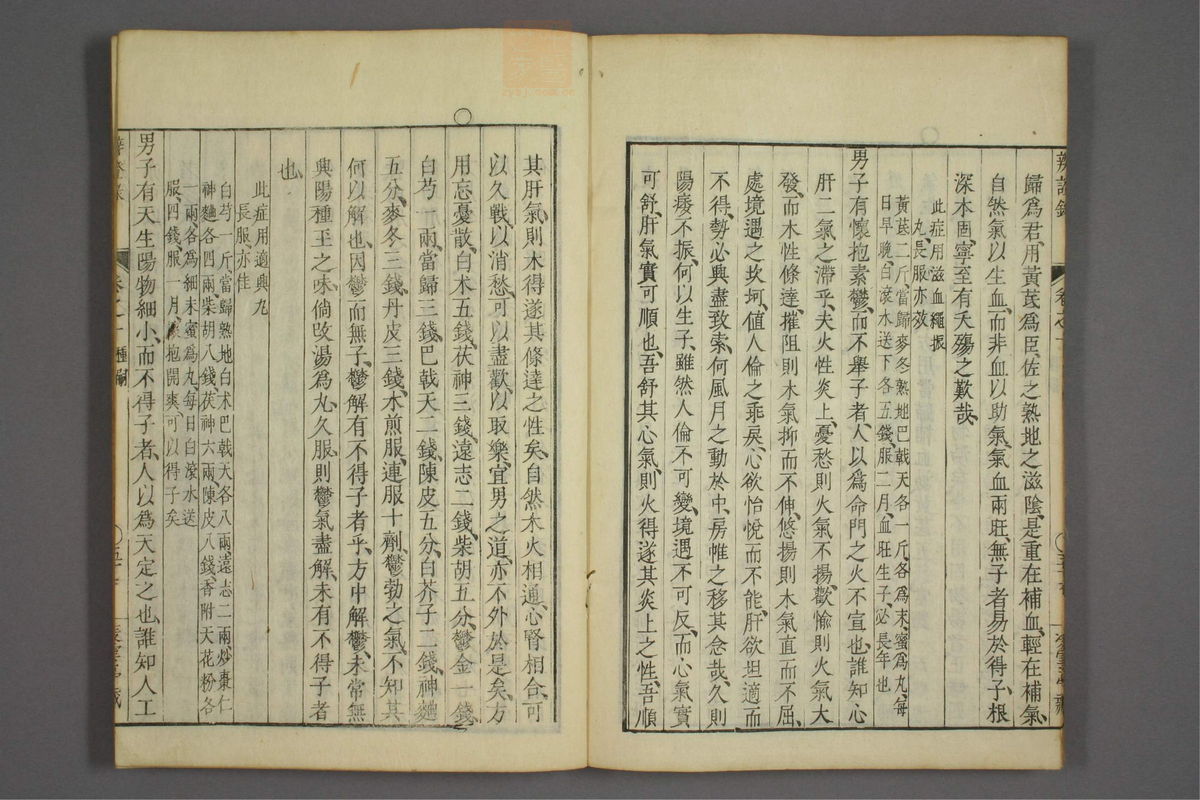 歸爲君用黃芪爲臣佐之熟地之滋陰是重在補血輕在補氣
自然氣以生血而非血以助氣氣血兩旺無子者易於得子根
深本固寧至有夭殤之歎哉
此症用滋血繩振
丸長服亦效
黃芪二斤當歸麥冬熟地巴戟天各一斤各爲末蜜爲丸每
日早晚白滾水送下各五錢服二月血旺生子必長年也
男子有懷抱素鬱而不舉子者人以爲命門之火不宣也誰知心
肝二氣之滯乎夫火性炎上憂愁則火氣不揚歡愉則火氣大
發而木性條達摧阻則木氣抑而不伸悠揚則木氣直而不屈
處境遇之坎坷値人倫之乖戾心欲怡悅而不能肝欲坦適而
不得勢必興盡致索何風月之動於中房帷之移其念哉久則
陽痿不振何以生子雖然人倫不可變境遇不可反而心氣實
可舒肝氣實可順也吾舒其心氣則火得遂其炎上之性吾順
其肝氣則木得遂其條達之性矣自然木火相通心腎相合可
以久戰以消愁可以盡歡以取樂宜男之道亦不外於是矣方
用忘憂散白术五錢茯神三錢遠志二錢柴胡五分鬱金一錢
白芍一兩當歸三錢巴戟天二錢陳皮五分白芥子二錢神麯
五分麥冬三錢丹皮三錢水煎服連服十劑鬱勃之氣不知其
何以解也因鬱而無子鬱解有不得子者乎方中解鬱未常無
興陽種玉之味倘改湯爲丸久服則鬱氣盡解未有不得子者
也
此症用適興丸
長服亦佳
白芍一斤當歸熟地白术巴戟天各八兩遠志二兩炒棗仁
神麯各四兩柴胡八錢茯神六兩陳皮八錢香附天花粉各
一兩各爲細末蜜爲丸每日白滾水送
服四錢服一月懷抱開爽可以得子矣
男子有天生陽物細小而不得子者人以爲天定之也誰知人工